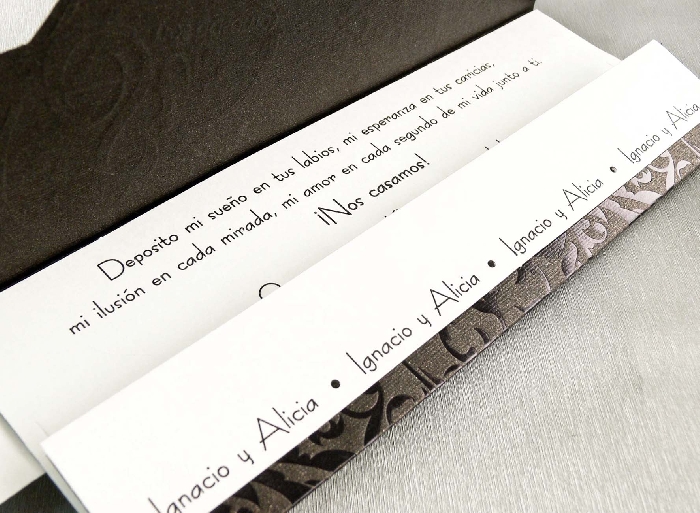 Deposito mi sueño en tus labios, mi esperanza en tus caricias,
mi ilusión en cada mirada, mi amor en cada segundo de mi vida junto a ti.
¡Nos casamos!
Ignacio y Alicia • Ignacio y Alicia • Ignacio y Alicia • Ignacio y Alicia